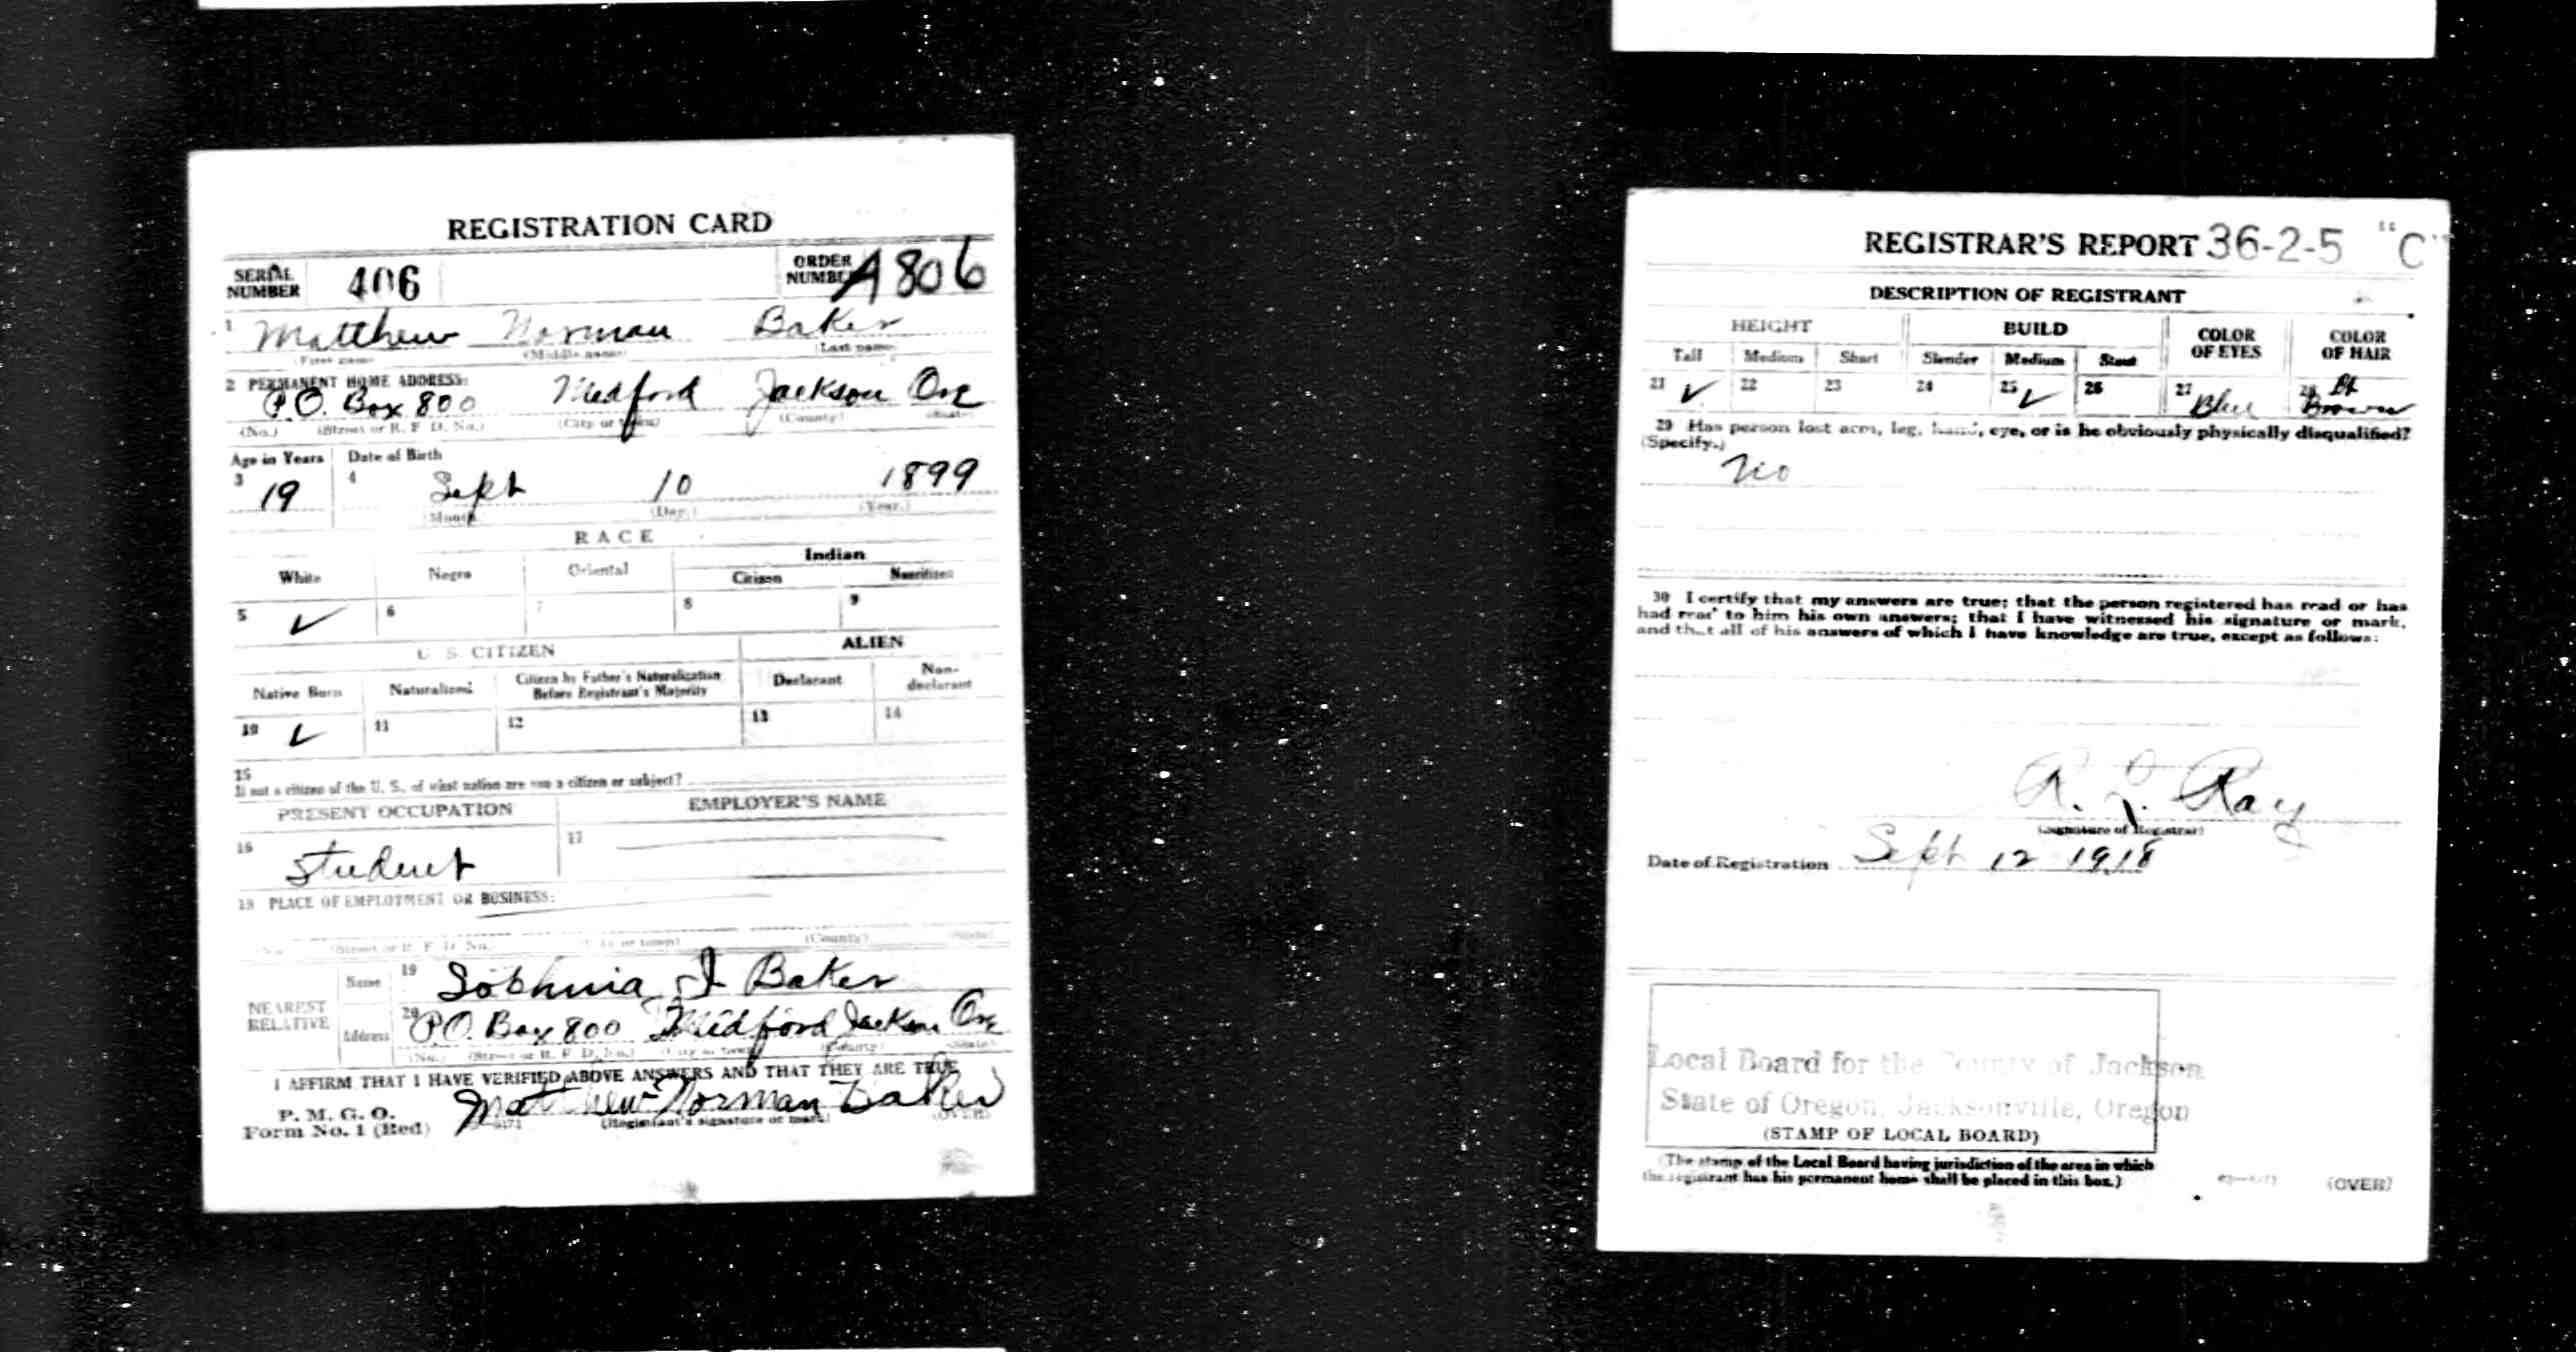 REGISTRATION CARD
SERIAL NUMBER 406 ORDER NUMBER A806
1 Matthew Norman Baker
(First name) (Middle name) (Last name)
2 PERMANENT HOME ADDRESS:
P.O. Box 800 Medford Jackson Ore
(No.) (Street or R. F. D. No.) (City or town) (County) (State)
Age in Years Date of Birth
3 19 4 Sept 10 1899
(Month.) (Day.) (Year.)
RACE
White Negro Oriental Indian
Citizen Noncitizen
5 ✓ 6 7 8 9
U. S. CITIZEN ALIEN
Native Born Naturalized Citizen by Father's Naturalization Before Registrant's Majority Declarant Non-declarant
10 ✓ 11 12 13 14
15
If not a citizen of the U. S., of what nation are you a citizen or subject?
PRESENT OCCUPATION EMPLOYER'S NAME
16 Student 17
18 PLACE OF EMPLOYMENT OR BUSINESS:
(No.) (Street or R. F. D. No.) (City or town) (County) (State)
NEAREST RELATIVE
Name 19 I Baker
Address 20 P.O. Box 800 Medford Jackson Ore
(No.) (Street or R. F. D. No.) (City or town) (County) (State)
I AFFIRM THAT I HAVE VERIFIED ABOVE ANSWERS AND THAT THEY ARE TRUE
P. M. G. O.
Form No. 1 (Red) Matthew Norman Baker
(Registrant's signature or mark) (OVER)
REGISTRAR'S REPORT 36-2-5 "C"
DESCRIPTION OF REGISTRANT
HEIGHT BUILD COLOR OF EYES COLOR OF HAIR
Tall Medium Short Slender Medium Stout
21 ✓ 22 23 24 25 ✓ 26 27 Blue 28 Lt Brown
29 Has person lost arm, leg, hand, eye, or is he obviously physically disqualified?
(Specify.)
No
30 I certify that my answers are true; that the person registered has read or has
had read to him his own answers; that I have witnessed his signature or mark,
and that all of his answers of which I have knowledge are true, except as follows:
Ray
(Signature of Registrar)
Date of Registration Sept 12 1918
Local Board for the County of Jackson
State of Oregon, Jacksonville, Oregon
(STAMP OF LOCAL BOARD)
(The stamp of the Local Board having jurisdiction of the area in which
the registrant has his permanent home shall be placed in this box.)
(OVER)